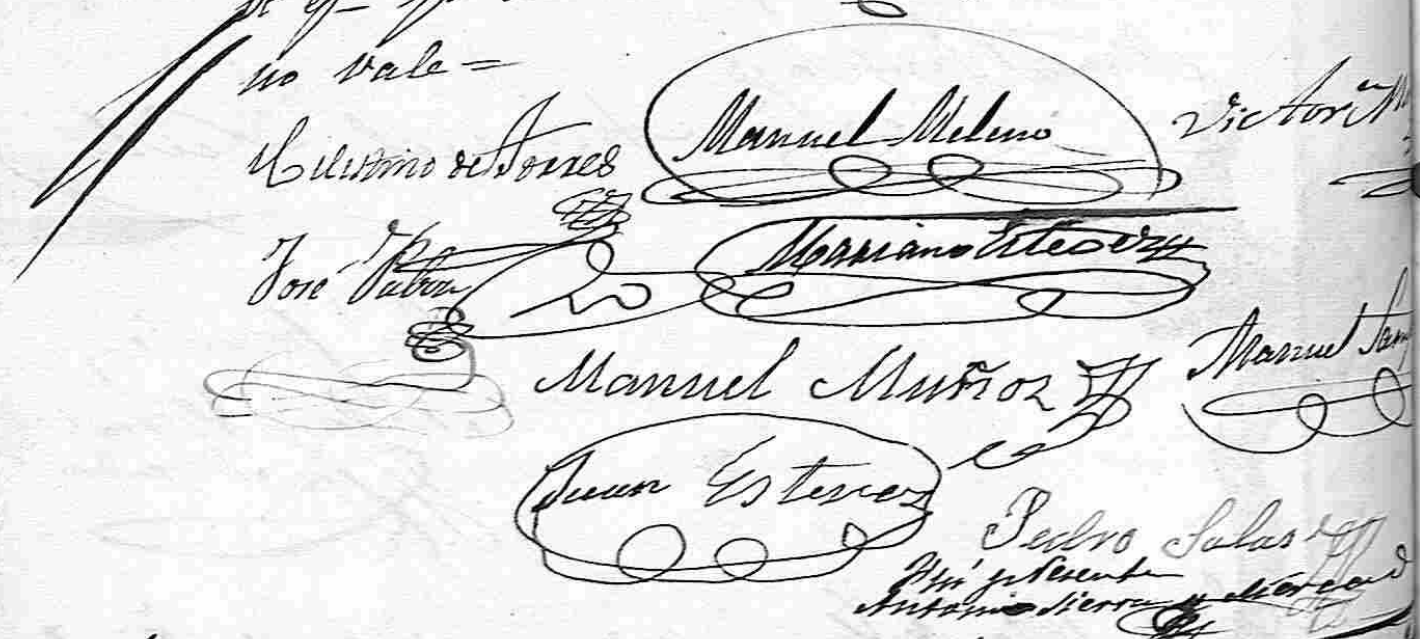 no vale =
Celestino de Torres
Manuel Meleno
Victor.n M
José Pabon
Mariano Estevez
Manuel Muñoz
Manuel Sam
Juan Estevez
Pedro Salas
Fui presente
Antonio Sierra y